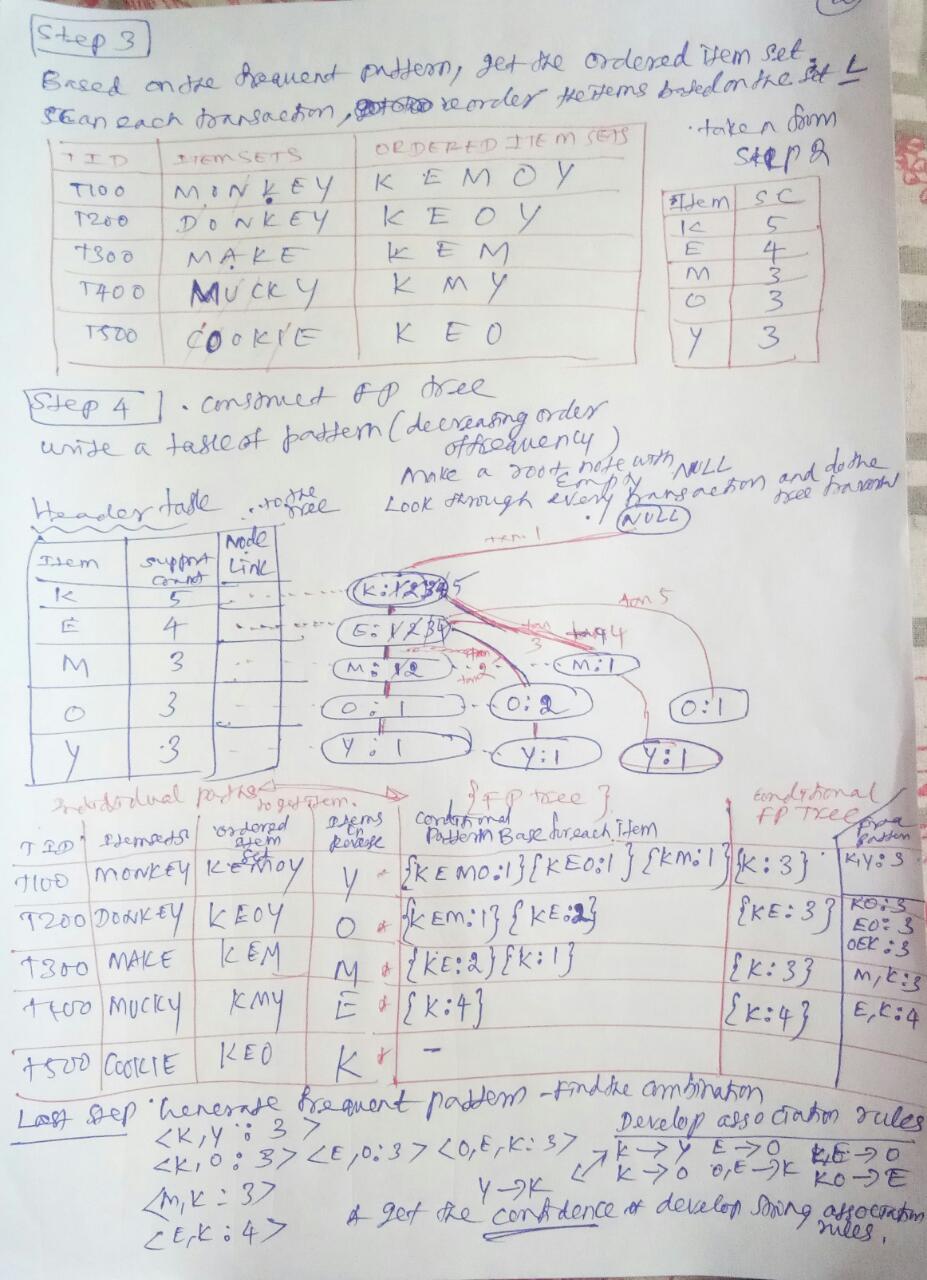 Step 3
Based on the frequent pattern, get the ordered item set.
Scan each transaction, reorder the items based on the set L
· taken from
Step 2
TID ITEMSETS ORDERED ITEM SETS
T100 MONKEY K E M O Y
T200 DONKEY K E O Y
T300 MAKE K E M
T400 MUCKY K M Y
T500 COOKIE K E O
Item SC
K 5
E 4
M 3
O 3
Y 3
Step 4 · construct FP tree
write a table of pattern (decreasing order
of frequency)
Make a root note with
Empty NULL
Look through every transaction and do the
tree
Header table ..to the
tree
NULL
tran 1
Item support
count Node
Link
K 5
E 4
M 3
O 3
Y 3
K: 1 2 3 4 5
tran 5
E: 1 2 3 4
tran
3
tran 4
M: 1 2
M: 1
O: 1
O: 2
O: 1
Y: 1
Y: 1
Y: 1
Individual paths
to get item.
{FP tree}
Conditional
FP Tree
TID Itemsets ordered
item
set Items
in
Reverse Conditional
Pattern Base for each item
pattern
T100 MONKEY KEMOY Y {KEMO:1} {KEO:1} {KM:1} {K:3} K,Y:3
T200 DONKEY KEOY O {KEM:1} {KE:2} {KE:3} KO:3
EO:3
OEK:3
T300 MAKE KEM M {KE:2} {K:1} {K:3} M,K:3
T400 MUCKY KMY E {K:4} {K:4} E,K:4
T500 COOKIE KEO K -
Last step · Generate frequent pattern - Find the combination
<K,Y : 3>
<K,O : 3> <E,O:3> <O,E,K:3>
<M,K : 3>
<E,K : 4>
Develop association rules
K → Y E → O K,E → O
K → O O,E → K KO → E
Y → K
* get the confidence & develop strong association
rules.